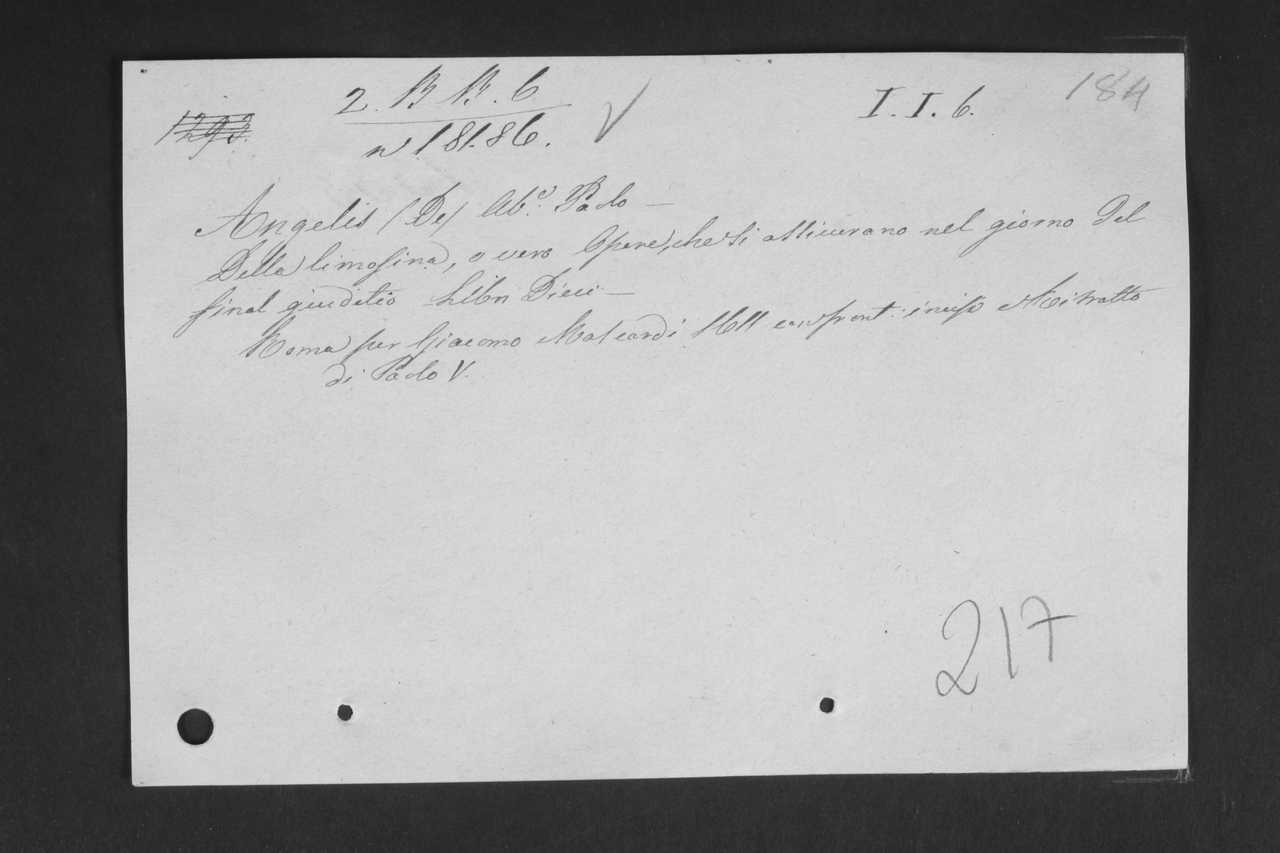 2. B B. 6 I. I. 6. 184
1293. n. 18186.
Angelis (De) Ab.e Paolo —
Della limosina, o vero Opere, che si assicurano nel giorno Del
final giuditio Libri Dieci —
Roma per Giacomo Mascardi 1611 con front: inciso e Ritratto
di Paolo V.
217